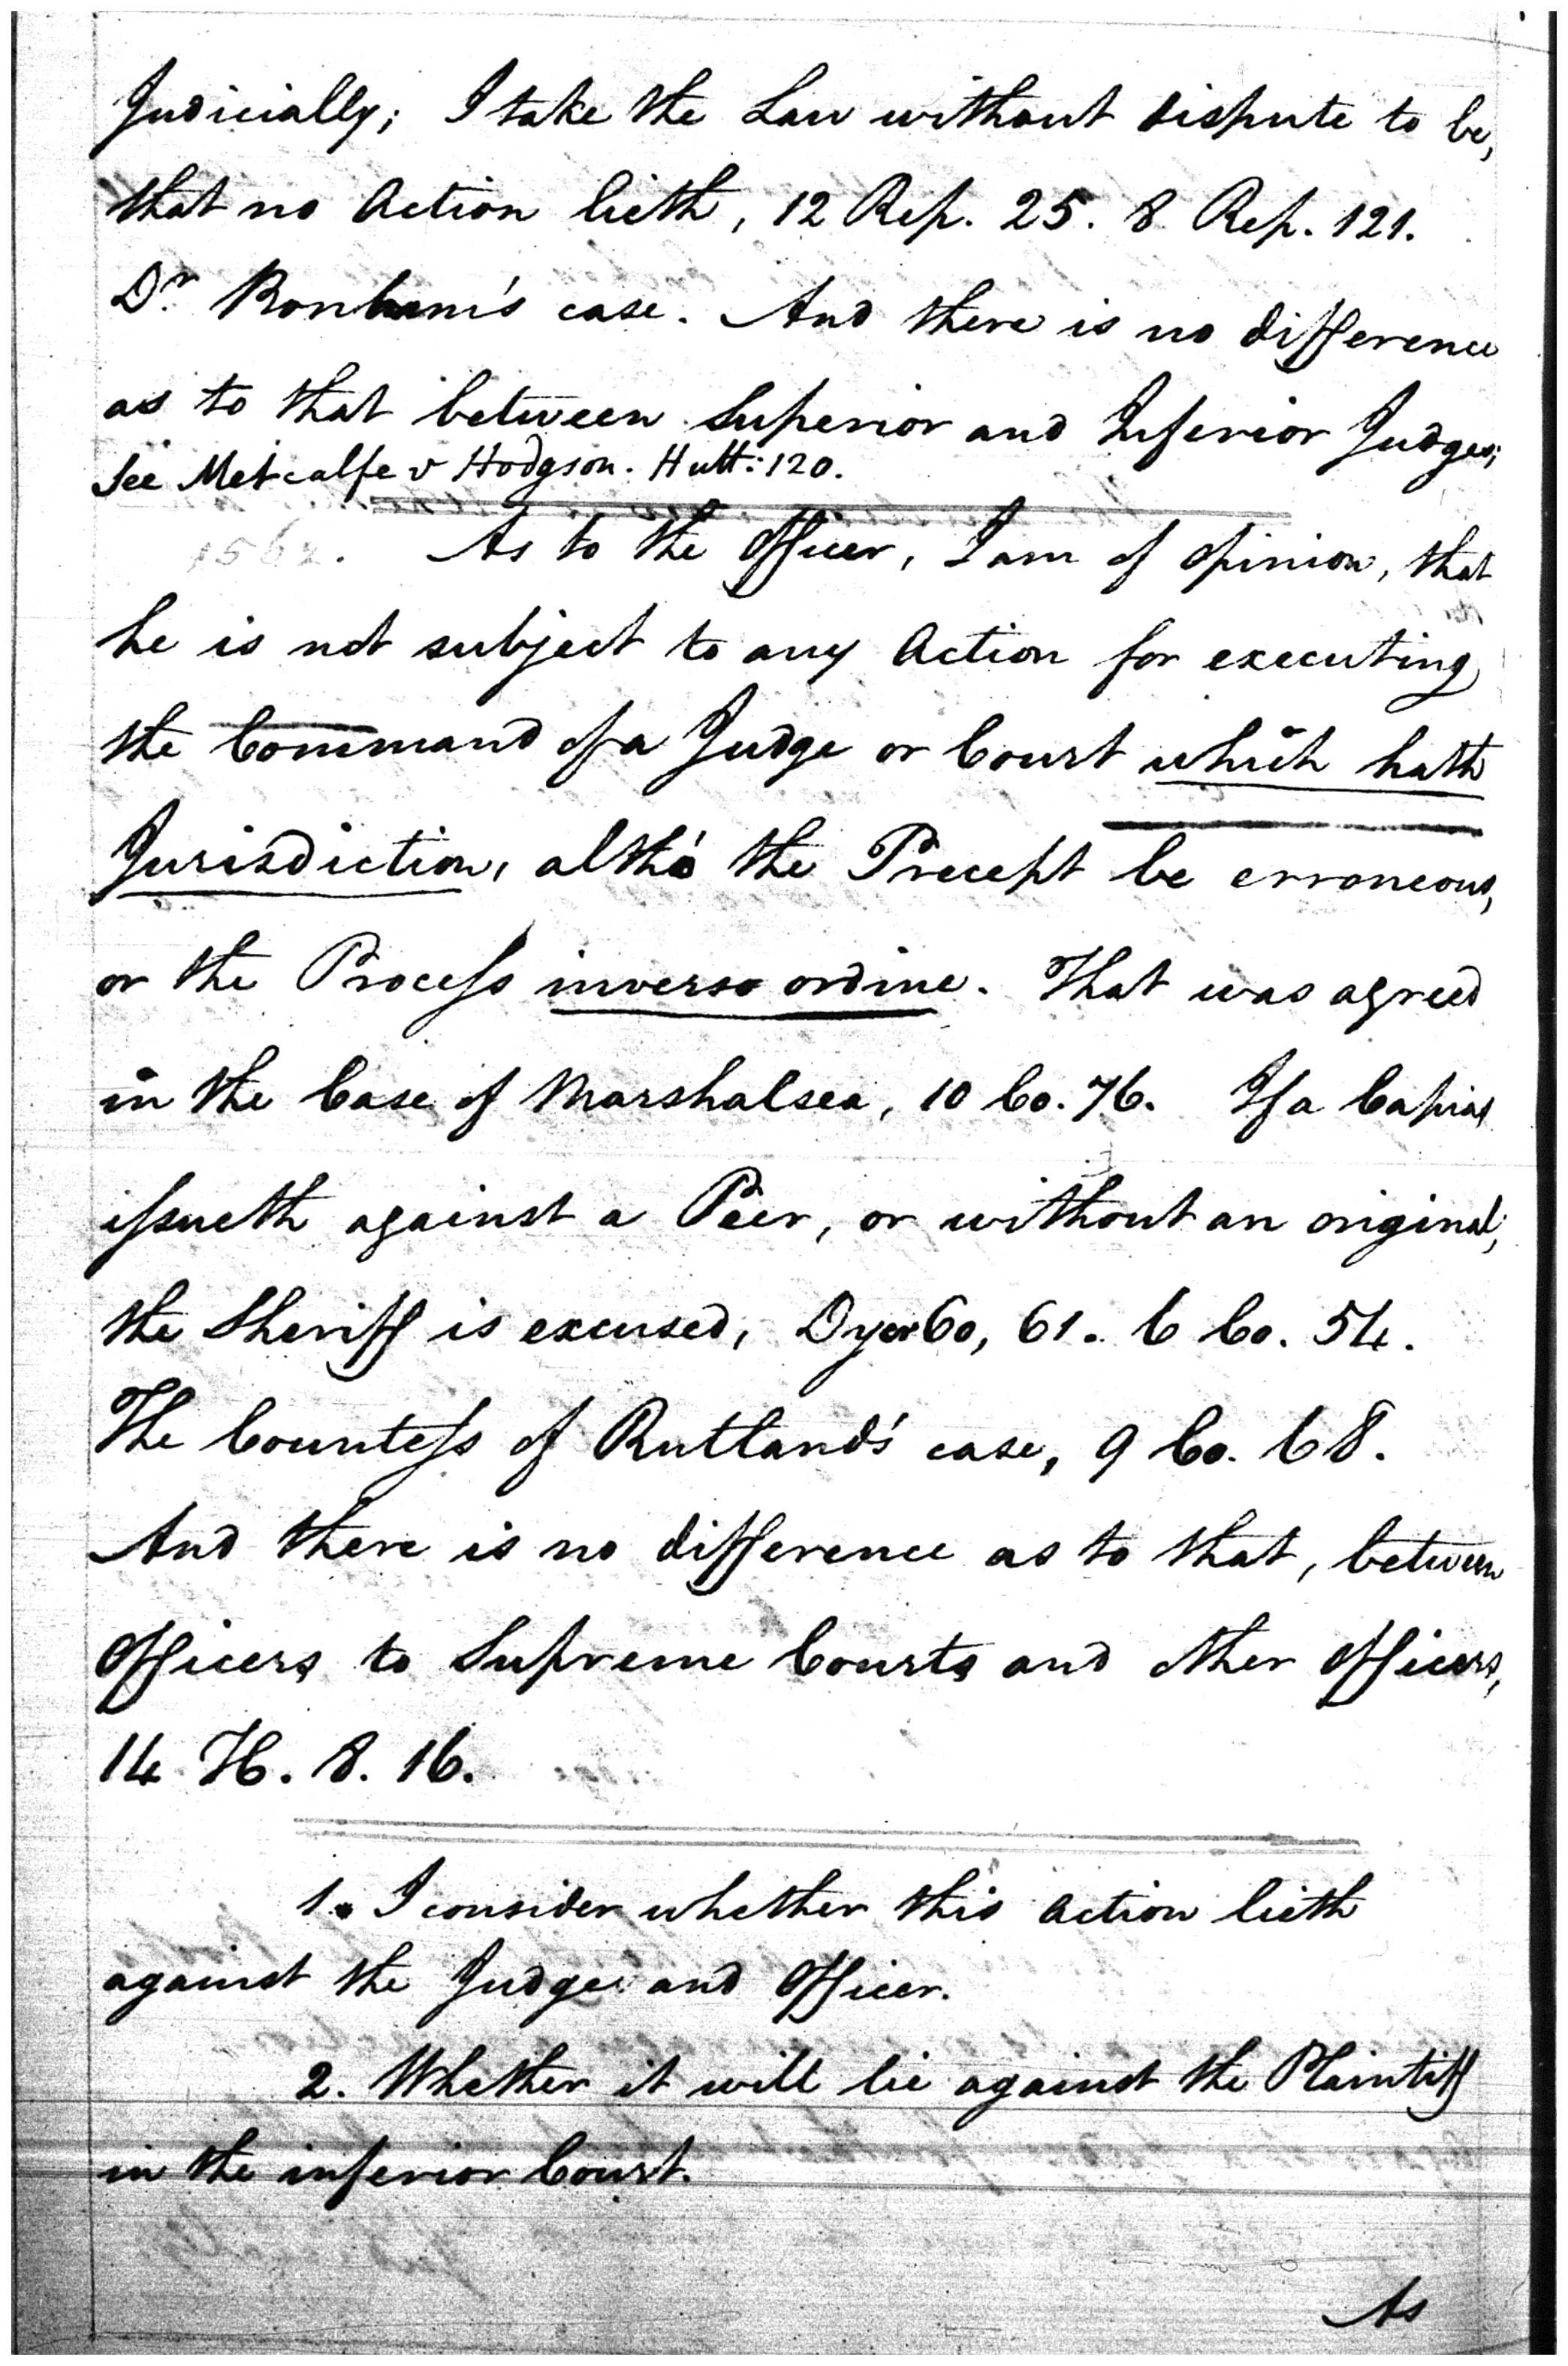 Judicially; I take the Law without dispute to be,
that no Action lieth, 12 Rep. 25. 8 Rep. 121.
Dr. Bonham's case. And there is no difference
as to that between Superior and Inferior Judges;
See Metcalfe v Hodgson. Hutt: 120.
1562. As to the Officer, I am of Opinion, that
he is not subject to any Action for executing
the Command of a Judge or Court which hath
Jurisdiction, altho' the Precept be erroneous,
or the Process inverso ordine. That was agreed
in the Case of Marshalsea, 10 Co. 76. If a Capias
issueth against a Peer, or without an original,
the Sheriff is excused, Dyer 60, 61. 6 Co. 54.
The Countess of Rutland's case, 9 Co. 68.
And there is no difference as to that, between
Officers to Supreme Courts and other Officers,
14 H. 8. 16.
1. I consider whether this Action lieth
against the Judge and Officer.
2. Whether it will lie against the Plaintiff
in the inferior Court.
As